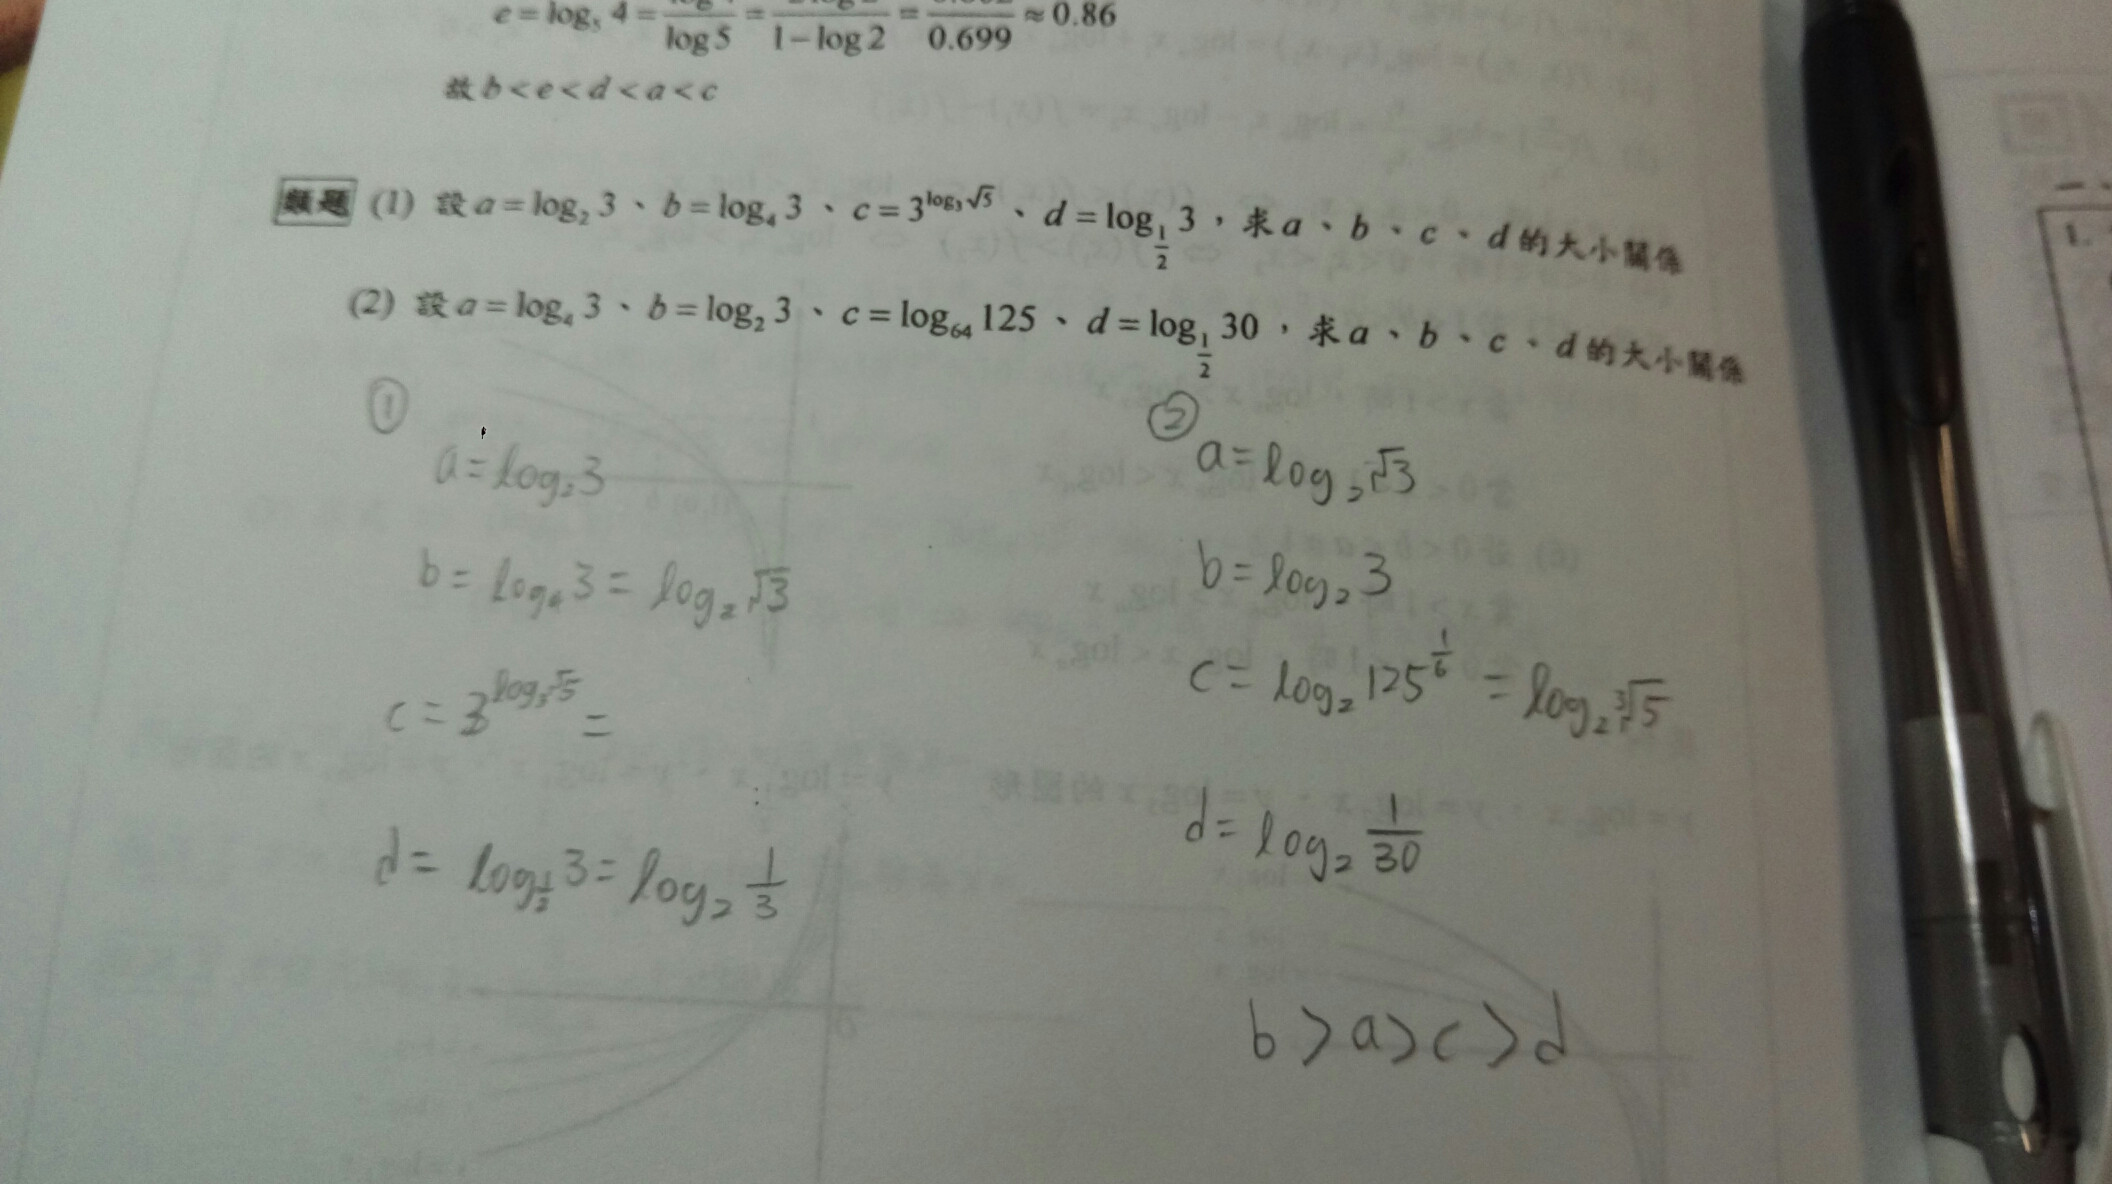 e = log₅ 4 = / log 5 = / 1 − log 2 = / 0.699 ≈ 0.86
故 b < e < d < a < c
類題 (1) 設 a = log₂ 3、b = log₄ 3、c = 3^(log₃ √5)、d = log_(1/2) 3，求 a、b、c、d 的大小關係
(2) 設 a = log₄ 3、b = log₂ 3、c = log₆₄ 125、d = log_(1/2) 30，求 a、b、c、d 的大小關係
①
a = log₂ 3
b = log₄ 3 = log₂ √3
c = 3^(log₃ √5) =
d = log_(1/2) 3 = log₂ 1/3
②
a = log₂ √3
b = log₂ 3
c = log₂ 125^(1/6) = log₂ ³√5
d = log₂ 1/30
b > a > c > d
1.